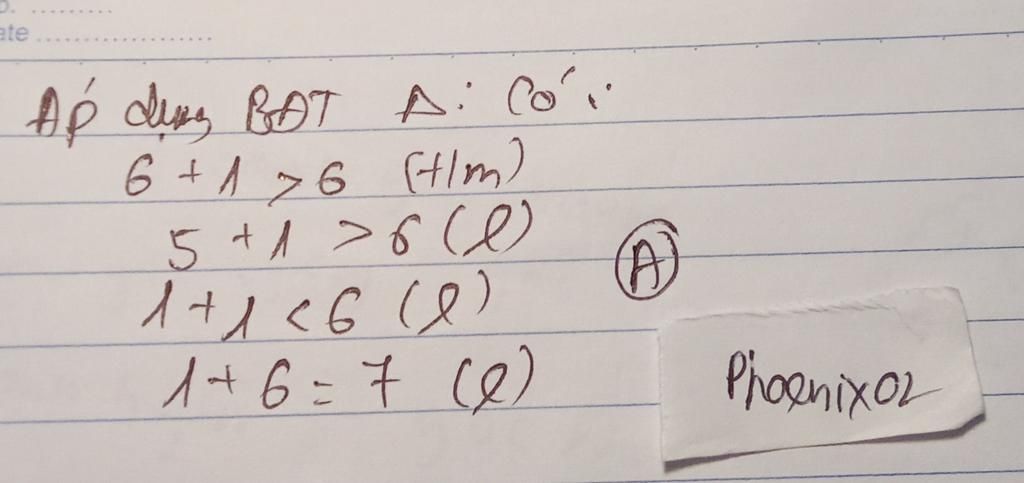 ate ....................
Áp dụng BĐT Δ: Có:
6 + 1 > 6 (t/m)
5 + 1 > 6 (l)
1 + 1 < 6 (l)
1 + 6 = 7 (l)
A
Phoenix02